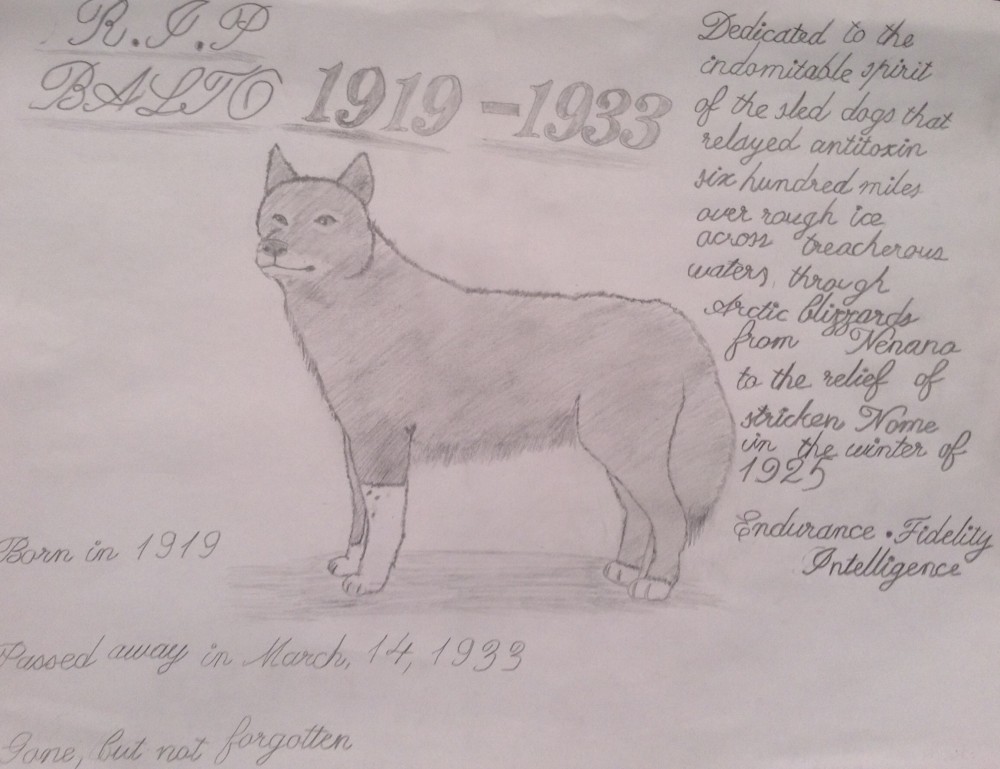 R.I.P
BALTO 1919-1933
Dedicated to the
indomitable spirit
of the sled dogs that
relayed antitoxin
six hundred miles
over rough ice
across treacherous
waters, through
Arctic blizzards
from Nenana
to the relief of
stricken Nome
in the winter of
1925
Endurance • Fidelity
Intelligence
Born in 1919
Passed away in March, 14, 1933
Gone, but not forgotten